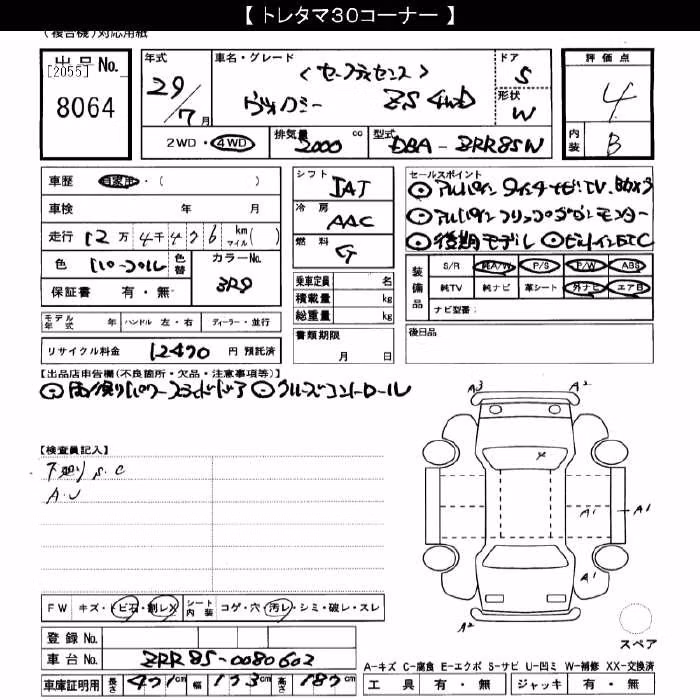 【 トレタマ30コーナー 】
(複合機)対応用紙
出品No. [2055] 8064
年式 29/7月
車名・グレード <セーフティセンス> ヴォクシー ZS 4WD
ドア 5
形状 W
評価点 4
内装 B
2WD・4WD
排気量 2000 cc
型式 DBA-ZRR85W
車歴 自家用・( )
車検 年 月
走行 12万4千476 km マイル( )
色 パール 色替
カラーNo. 3R9
保証書 有・無
シフト IAT
冷房 AAC
燃料 G
乗車定員 名
積載量 kg
総重量 kg
セールスポイント
⊙アルパイン 9インチナビTV.
⊙アルパインフリップダウンモニター
⊙後期モデル ⊙ビルトインETC
装備品 S/R 純A/W P/S P/W ABS
純TV 純ナビ 革シート 外ナビ エアB
ナビ型番:
モデル年式 年 ハンドル 左・右 ディーラー・並行
リサイクル料金 12470 円 預託済
書類期限 月 日
後日品
【出品店申告欄(不良箇所・欠品・注意事項等)】
⊙両側パワースライドドア ⊙クルーズコントロール
A3 A2
【検査員記入】
下廻り S.C
A.U
A1 A1
A1
A2
FW キズ・トビ石・割レX
シート内装 コゲ・穴・汚レ・シミ・破レ・スレ
登録No.
車台No. ZRR85-0080602
車庫証明用 長さ 471cm 幅 173cm 高さ 187cm
スペア
A-キズ C-腐食 E-エクボ S-サビ U-凹ミ W-補修 XX-交換済
工具 有・無 ジャッキ 有・無